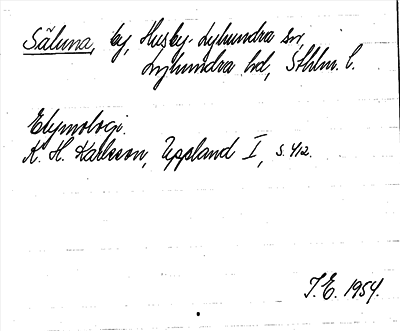 Säluna, by, Husby-Lyhundra sn,
Lyhundra hd, Sthlm. l.
Etymologi.
K. H. Karlsson, Uppland I, s. 412.
I.E. 1954.